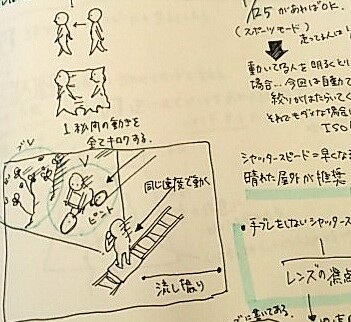 1/25 があればOK.
(スポーツモード)
走ってる人は
動いてる人を明るくとり
場合…今回は自動で
絞りがはたらいてく
それでもダメな場合は
ISO
1秒間の動きを
全てキロクする。
シャッタースピード=早くなる
晴れた屋外が推奨
ブレ
ピント
同じ速度で動く
流し撮り
・手ブレをしないシャッタース
レンズの焦点
に書いてある。